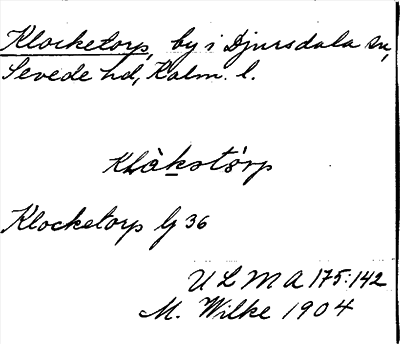 Klocketorp, by i Djursdala sn,
Sevede hd, Kalm. l.
Klàkstȯrp
Klocketorp lj 36
ULMA 175:142
M. Wilke 1904